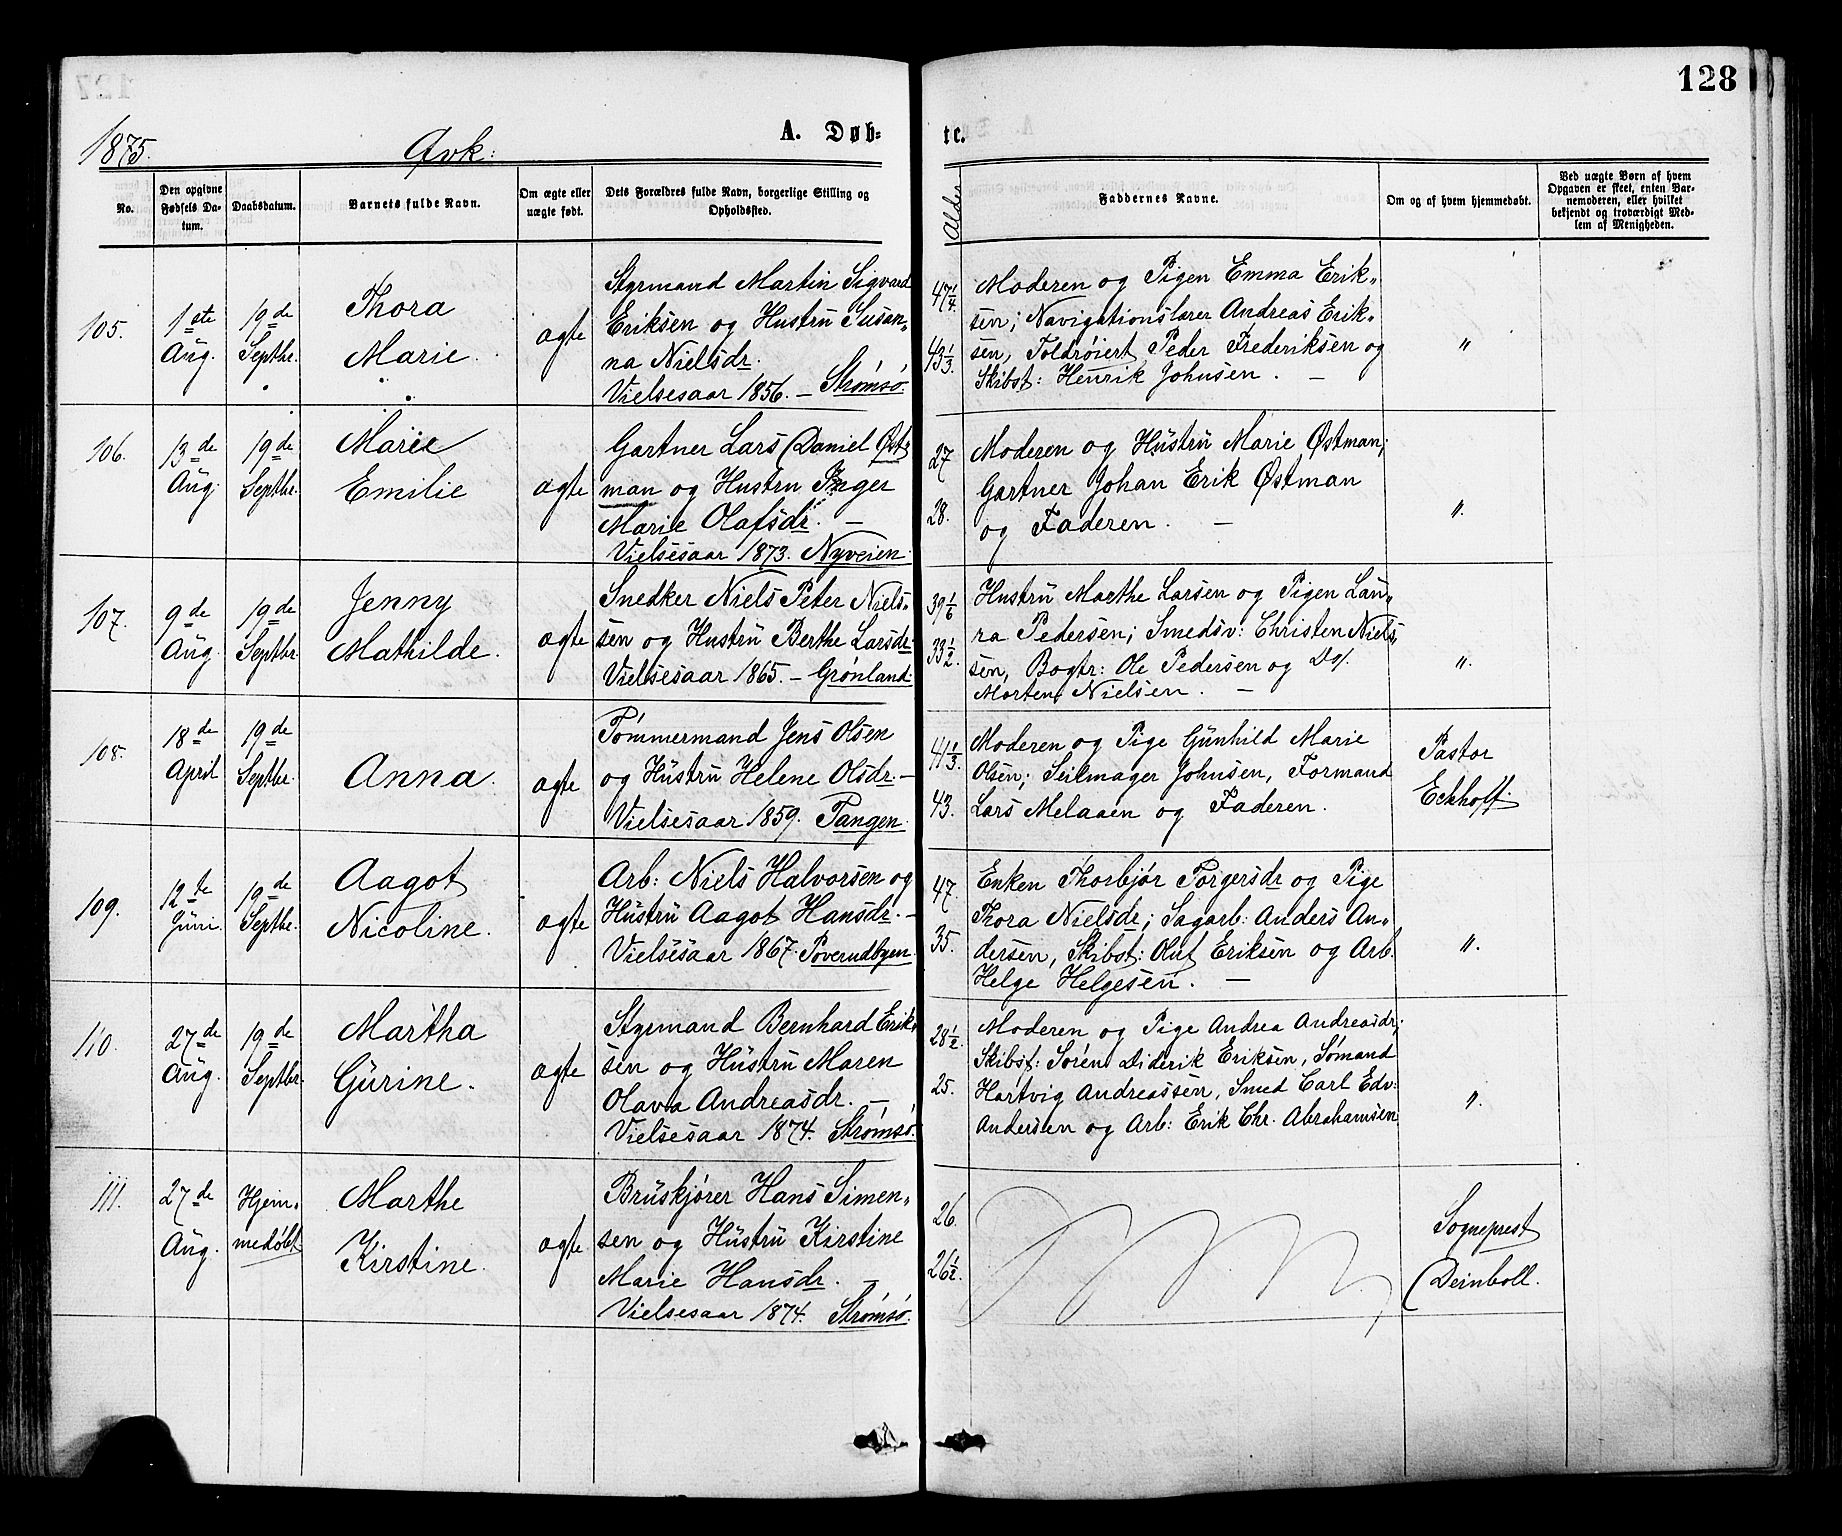 128
1875. Qvk: A. Døb= te.
No.
Den opgivne Fødsels Da-tum.
Daabsdatum.
Barnets fulde Navn.
Om ægte eller uægte født.
Dets Forældres fulde Navn, borgerlige Stilling og Opholdssted.
Alder
Faddernes Navne.
Om og af hvem hjemmedøbt.
Ved uægte Børn af hvem Opgaven er skeet, enten Bar-nemoderen, eller hvilket bekjendt og troværdigt Med-lem af Menigheden.
105.
1ste Aug.
19de Septbr.
Thora
Marie.
ægte
Styrmand Martin Sigvard
Eriksen og Hustru Susan„
na Nielsdr.
Vielsesaar 1856. – Strømsø.
47 1/4
43 1/3.
Moderen og Pigen Emma Erik„
sen; Navigationslærer Andreas Erik„
sen, Toldrøiert Peder Frederiksen og
Skibst: Henrik Johnsen. –
"
106.
13de Aug.
19de Septbr.
Marie
Emilie
ægte
Gartner Lars Daniel Øst
man og Hustru Inger
Marie Olafsdr. –
Vielsesaar 1873. Nyveien.
27
28.
Moderen og Hustru Marie Østman;
Gartner Johan Erik Østman
og Faderen. –
".
107.
9de Aug.
19de Septbr.
Jenny
Mathilde.
ægte
Snedker Niels Peter Niels„
sen og Hustru Berthe Larsdr
Vielsesaar 1865. – Grønland.
39 1/6
33 1/2.
Hustru Marthe Larsen og Pigen Lau„
ra Pedersen; Smedsv: Christen Niels„
sen, Bogtr: Ole Pedersen og Do/.
Morten Nielsen. –
".
108.
18de April
19de Septbr.
Anna.
ægte
Tømmermand Jens Olsen
og Hustru Helene Olsdr. –
Vielsesaar 1859. Tangen.
41 1/3
43.
Moderen og Pige Gunhild Marie
Olsen; Seilmager Johnsen, Formand
Lars Melaaen og Faderen.
Pastor
Eckhoff.
109.
12te Juni.
19de Septbr.
Aagot
Nicoline.
ægte
Arb: Niels Halvorsen og
Hustru Aagot Hansdr. –
Vielsesaar 1867. Toverudbyen
47.
35.
Enken Thorbjør Torgersdr og Pige
Thora Nielsdr; Sagarb: Anders An„
dersen, Skibst: Oluf Eriksen og Arb.
Helge Helgesen. –
".
110.
27de Aug.
19de Septbr.
Martha
Gurine.
ægte
Styrmand Bernhard Erik„
sen og Hustru Maren
Olava Andreasdr. –
Vielsesaar 1874. Strømsø.
28 1/2
25.
Moderen og Pige Andrea Andreasdr;
Skibst: Søren Diderik Eriksen, Sømand
Hartvig Andreassen, Smed Carl Edv:
Andersen og Arb: Erik Chr. Abrahamsen
".
111.
27de Aug.
Hjem„
medøbt
Marthe
Kirstine.
ægte
Bruskjører Hans Simen„
sen og Hustru Kirstine
Marie Hansdr. –
Vielsesaar 1874. Strømsø.
26.
26 1/2.
Sogneprest
Deinboll.